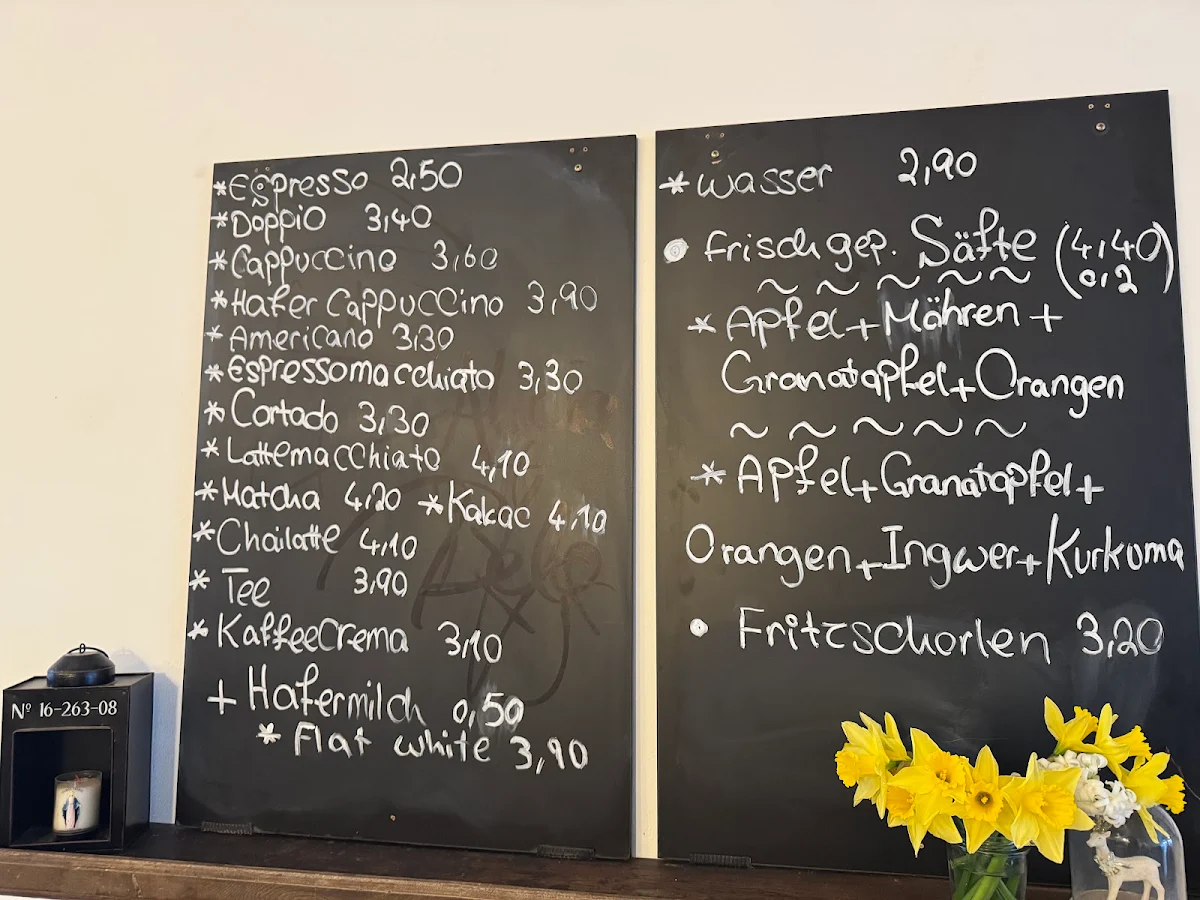 *Espresso 2,50
*Doppio 3,40
*Cappuccino 3,60
*Hafer Cappuccino 3,90
*Americano 3,30
*Espressomacchiato 3,30
*Cortado 3,30
*Lattemacchiato 4,10
*Matcha 4,20 *Kakao 4,10
*Chailatte 4,10
*Tee 3,90
*KaffeeCrema 3,10
+ Hafermilch 0,50
* Flat white 3,90
*wasser 2,90
frisch gep. Säfte (4,40)
0,2
~ ~ ~ ~ ~
*Apfel+Möhren+
Granatapfel+Orangen
~ ~ ~ ~ ~
*Apfel+Granatapfel+
Orangen+Ingwer+Kurkuma
• Fritzschorlen 3,20
Nº 16-263-08